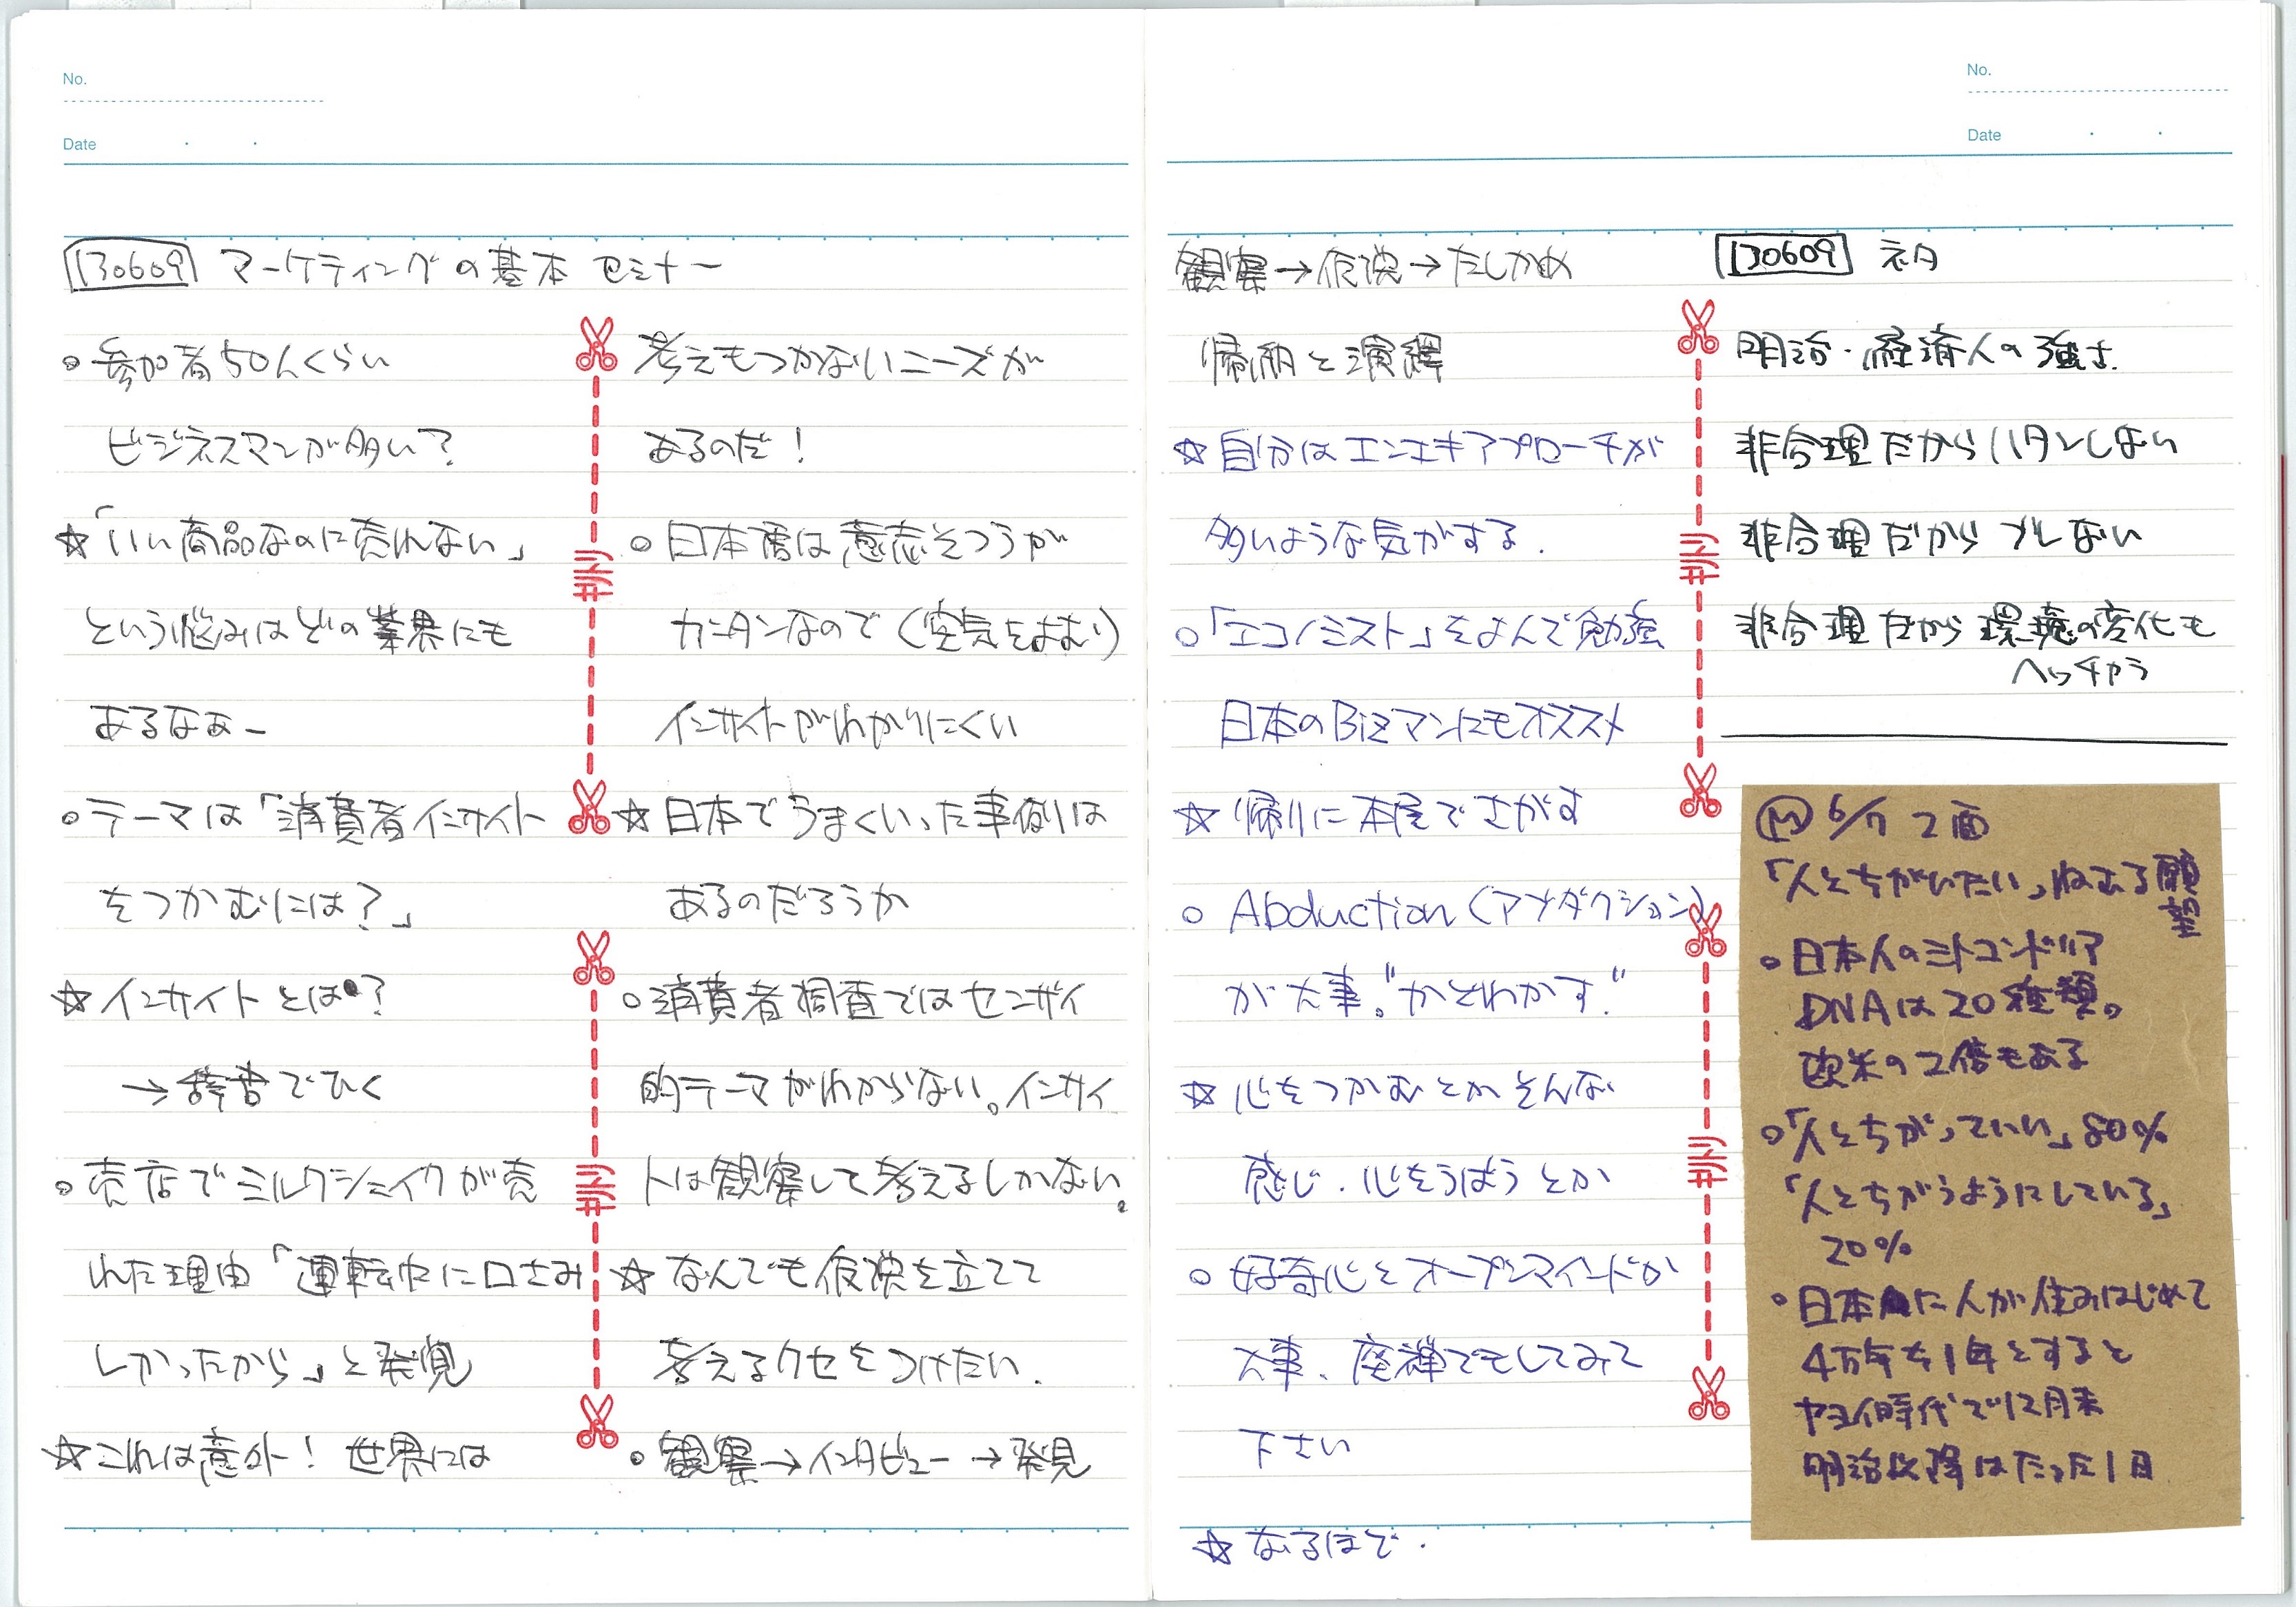 No.
Date
[130609] マーケティングの基本 セミナー
○参加者50人くらい
ビジネスマンが多い?
☆「いい商品なのに売れない」
という悩みはどの業界にも
あるなぁー
○テーマは「消費者インサイト
をつかむには?」
☆インサイトとは?
→辞書でひく
○売店でミルクシェイクが売
れた理由「運転中に口さみ
しかったから」と発見
☆これは意外! 世界には
キリトリ
キリトリ
考えもつかないニーズが
あるのだ!
○日本語は意志そつうが
カンタンなので(空気をよむ)
インサイトがわかりにくい
☆日本でうまくいった事例は
あるのだろうか
○消費者調査ではセンザイ
的テーマがわからない。インサイ
トは観察して考えるしかない。
☆なんでも仮説を立てて
考えるクセをつけたい.
○観察→インタビュー→発見
No.
Date
観察→仮説→たしかめ
帰納と演繹
☆自分はエンエキアプローチが
多いような気がする.
○「エコノミスト」をよんで勉強
日本のBizマンにもオススメ
☆帰りに本屋でさがす
○Abduction(アブダクション)
が大事。"かどわかす."
☆心をつかむとかそんな
感じ.心をうばうとか
○好奇心とオープンマインドが
大事、座禅でもしてみて
下さい
☆なるほど.
キリトリ
キリトリ
[130609] ネタ
明治・経済人の強さ.
非合理だからハタンしない
非合理だからブレない
非合理だから環境の変化も
ヘッチャラ
Ⓜ 6/7 2面
「人とちがいたい」ねある願望
○日本人のミトコンドリア
DNAは20種類。
欧米の2倍もある
○「人とちがっていい」80%
「人とちがうようにしている」
20%
○日本に人が住みはじめて
4万年を1年とすると
ヤヨイ時代で12月末
明治以降はたった1日